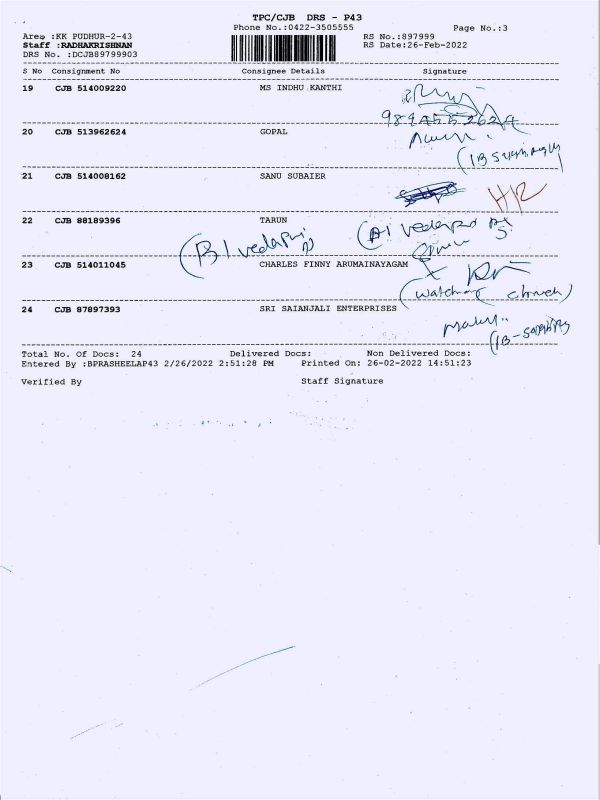 TPC/CJB DRS - P43
Phone No.:0422-3505555
Page No.:3
Area :KK PUDHUR-2-43
RS No.:897999
Staff :RADHAKRISHNAN
RS Date:26-Feb-2022
DRS No. :DCJB89799903
S No Consignment No Consignee Details Signature
19 CJB 514009220 MS INDHU KANTHI
20 CJB 513962624 GOPAL
21 CJB 514008162 SANU SUBAIER
HR
22 CJB 88189396 TARUN
23 CJB 514011045 CHARLES FINNY ARUMAINAYAGAM
24 CJB 87897393 SRI SAIANJALI ENTERPRISES
Total No. Of Docs: 24 Delivered Docs: Non Delivered Docs:
Entered By :BPRASHEELAP43 2/26/2022 2:51:28 PM Printed On: 26-02-2022 14:51:23
Verified By Staff Signature